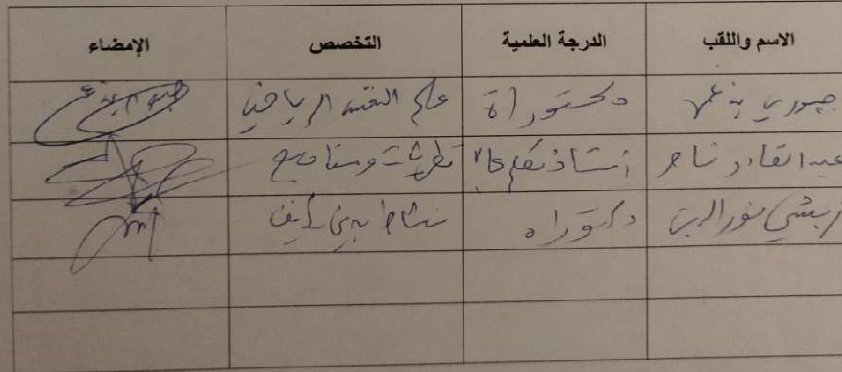 الاسم واللقب الدرجة العلمية التخصص الإمضاء
جبوري بن عمر دكتوراة علم النفس الرياضي
عبد القادر ناصر أستاذ تعليم عا نظريات ومناهج
نور الدين دكتوراه نشاط بدني